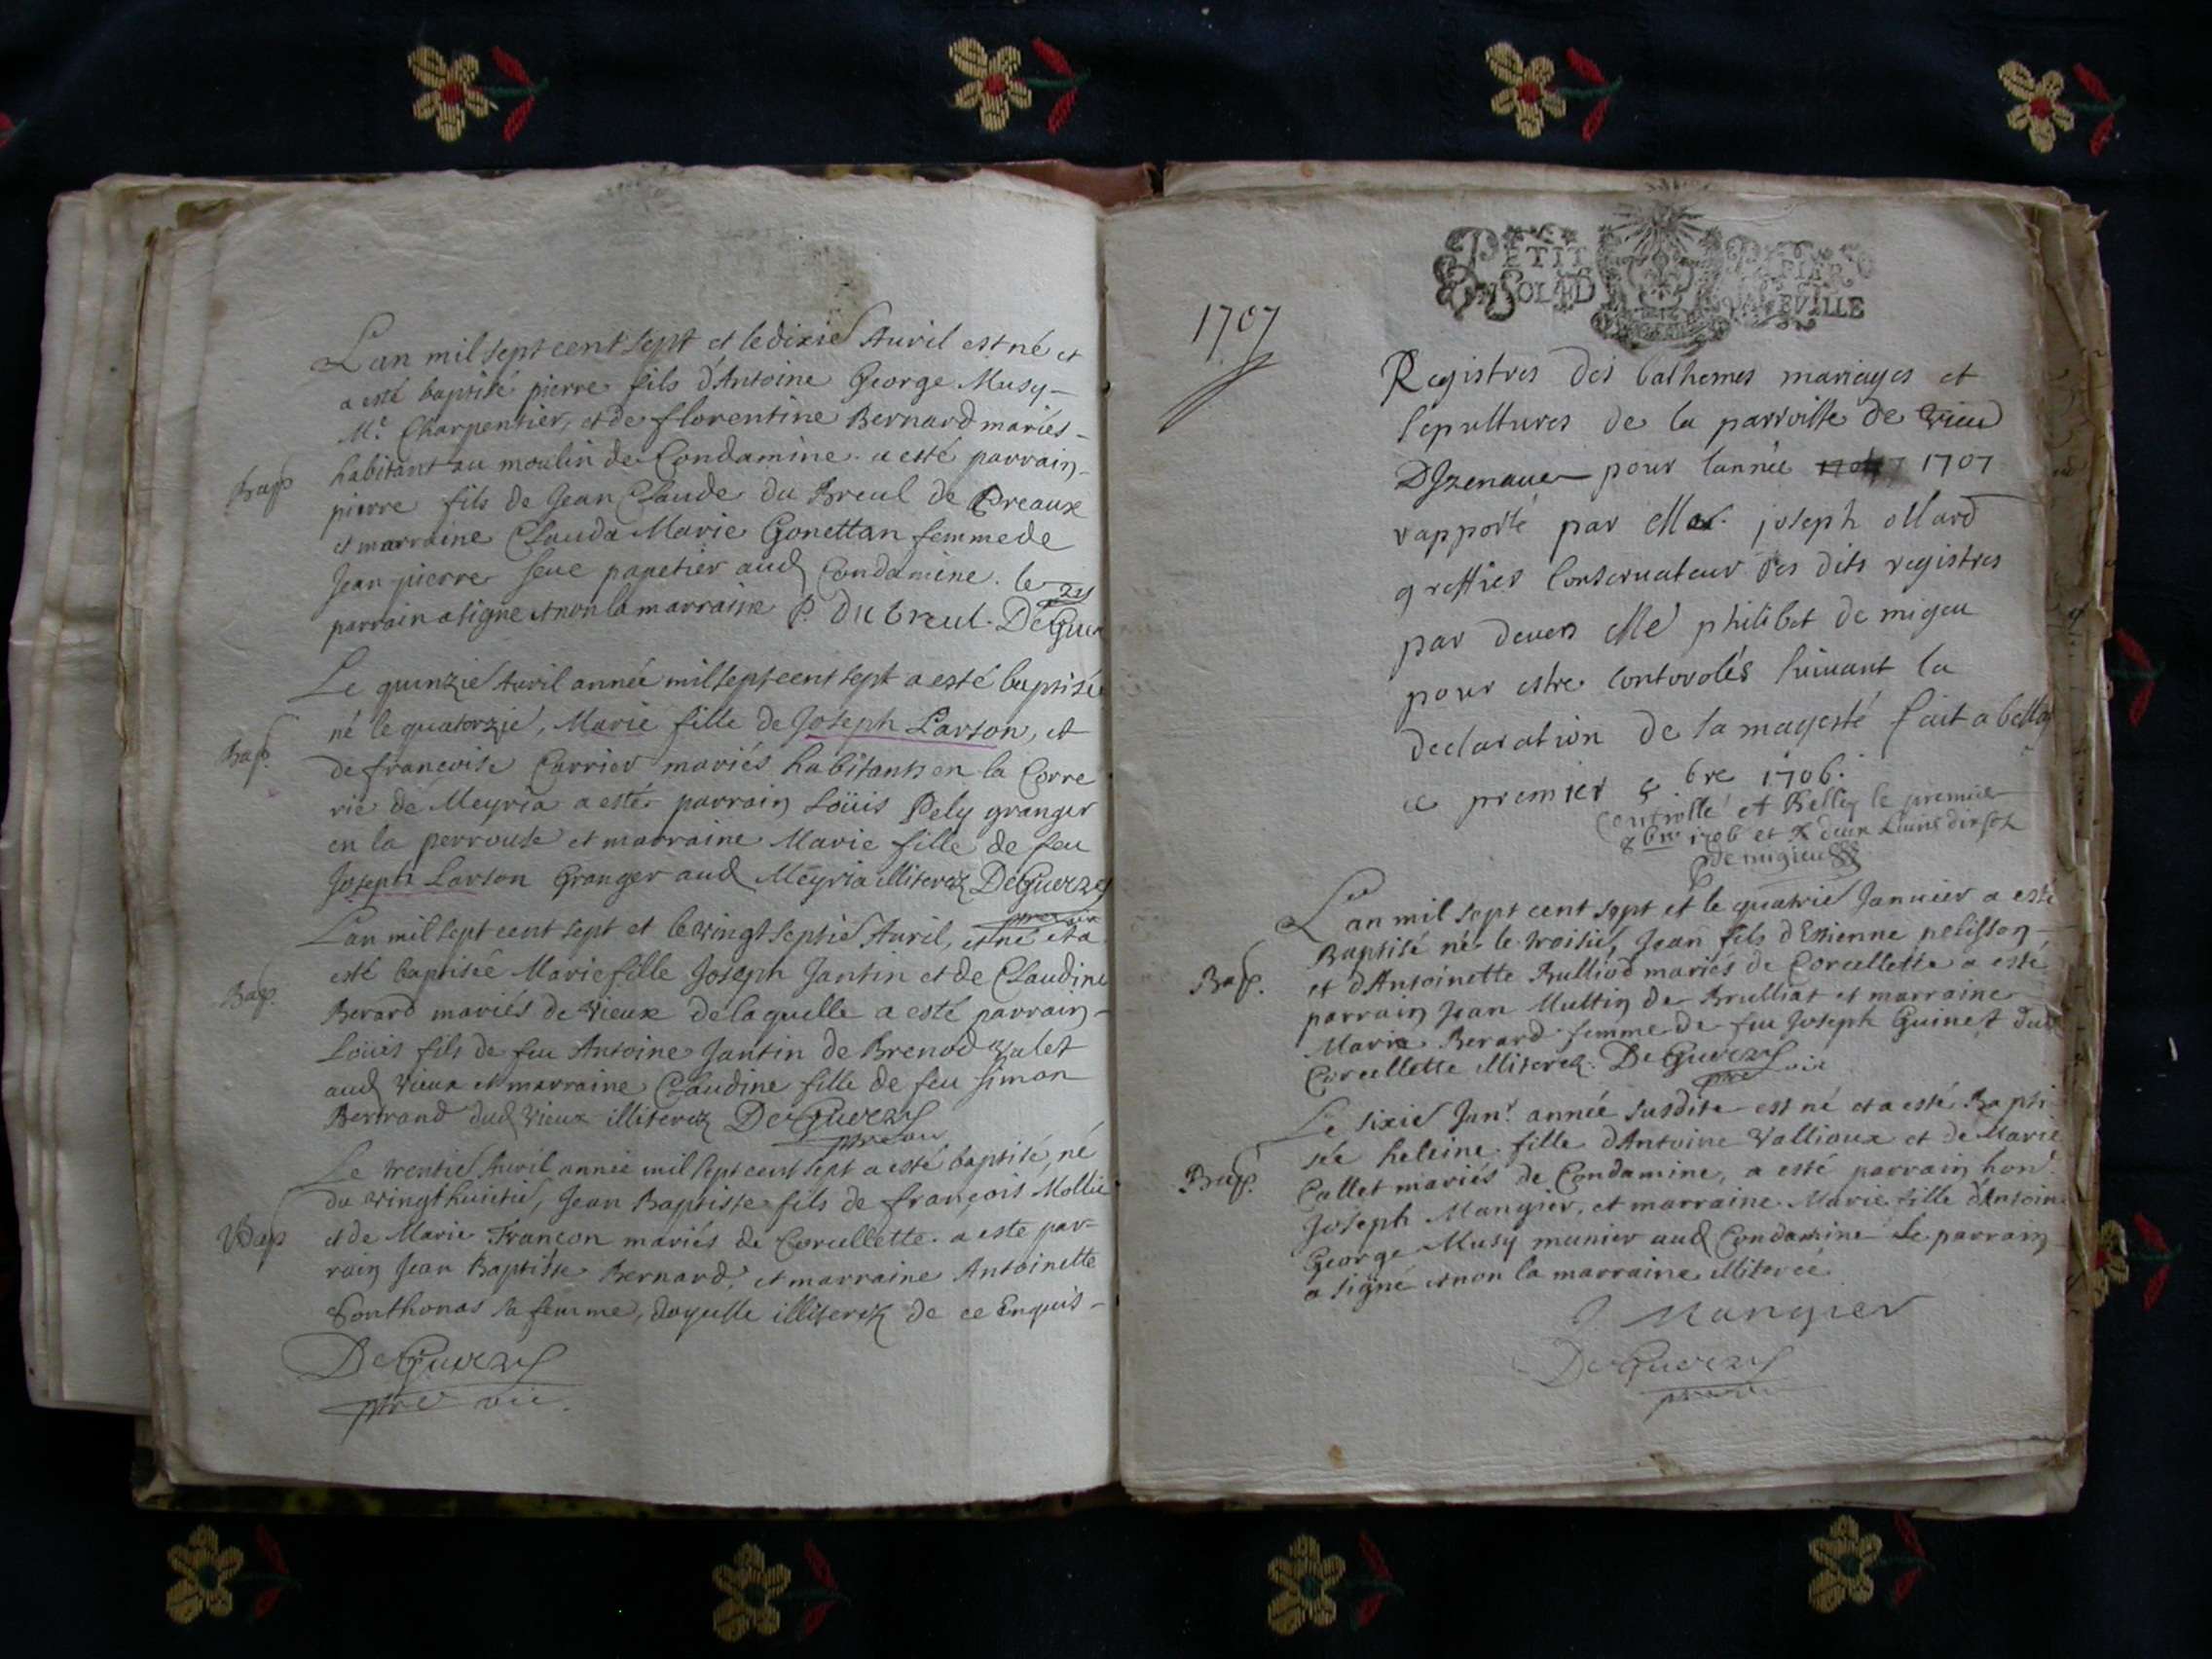 Lan mil sept cent sept et le dixie Auril est né et
a esté baptisé pierre fils d'Antoine George Musy
Mr. Charpentier, et de florentine Bernard mariés
habitant au moulin de Condamine. a esté parrain
Bap
pierre fils de Jean Claude du Breul de Breaux
et marraine Clauda Marie Gonettan femme de
Jean pierre seue papetier aud Condamine. le
parrain a signe et non la marraine P. Du breul. DeGuerzy
Le quinzie Auril année mil sept cent sept a esté baptisée
né le quatorzie, Marie fille de Joseph Larson, et
Bap.
de francoise Carrier mariés habitants en la Corre
rie de Meyria a esté parrain Loüis Pely granger
en la perrouse et marraine Marie fille de feu
Joseph Larson Granger aud Meyria illiterez DeGuerzy
Lan mil sept cent sept et le vingt septie Auril, est né et a
esté baptisée Marie fille Joseph Jantin et de Claudine
Bap.
Berard mariés de Vieux de laquelle a esté parrain
Loüis fils de feu Antoine Jantin de Brenod valet
aud Vieux et marraine Claudine fille de feu Simon
Bertrand dud Vieux illiterez DeGuerzy
Le trentie Auril année mil sept cent sept a esté baptisé, né
du vingt huictie, Jean Baptiste fils de françois Mollie
Bap
et de Marie Francon mariés de Corcellette. a este par-
rain Jean Baptiste Bernard, et marraine Antoinette
Ponthonas sa femme, illiterez de ce Enquis
DeGuerzy
ptre vic.
1707
PETIT PAPIER
UN SOL 4 D LA FEVILLE
Registres des bathemes mariages et
sepultures de la parroisse de vieu
DIzenaue pour lannée 1707
rapporté par Me. joseph ollard
greffier Conseruateur des dits registres
par deuers Me philibet de migeu
pour estre contorolés suiuant la
declaration de sa mayesté fait a belley
ce premier 9bre 1706.
Controllé A Belley le premier
9bre 1706 et
de migieu
Lan mil sept cent sept et le quatrie Januier a esté
Baptisé né le troisie, Jean fils d'Etienne pelisson
Bap.
et d'Antoinette Bulliod mariés de Corcellette a esté
parrain Jean Multin de Brulliat et marraine
Maria Berard femme de feu Joseph Guinet dud
Corcellette illiterez. DeGuerzy
Le sixie Janr. année susdite est né et a esté Bapti
sée heleine fille d'Antoine Vallioux et de Marie
Bap.
Callet mariés de Condamine, a esté parrain hon.
Joseph Mangier, et marraine Marie fille d'Antoine
George Musy munier aud Condamine le parrain
a signé et non la marraine illiterée
J Mangier
DeGuerzy